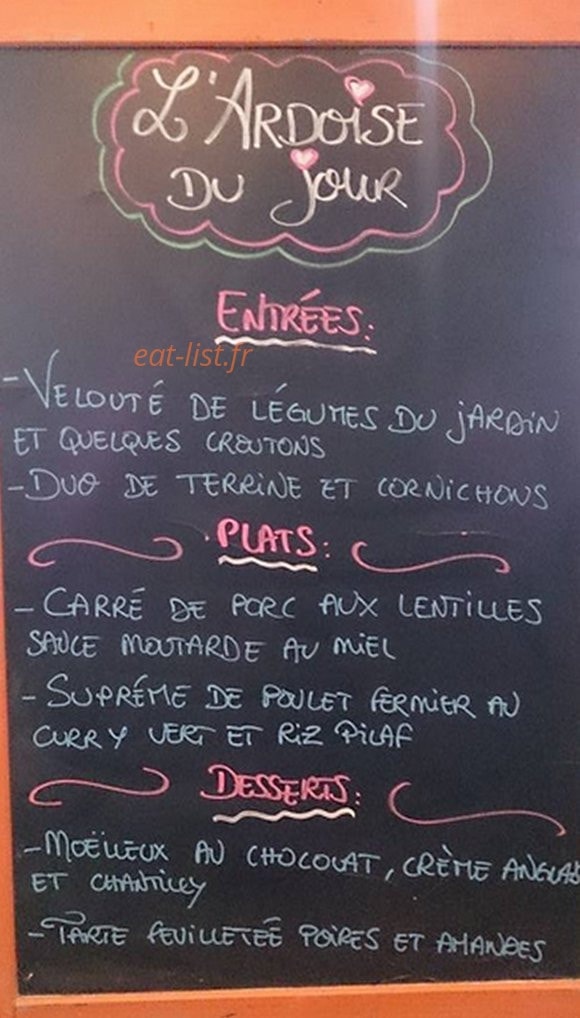 L'ARDOISE
DU jOUR
ENTRÉES:
eat-list.fr
- VELOUTÉ DE LÉGUMES DU jARDIN
ET QUELQUES CROUTONS
- DUO DE TERRINE ET CORNICHONS
.PLATS:
- CARRÉ DE PORC AUX LENTILLES
SAUCE MOUTARDE AU MiEL
- SUPRÉME DE POULET FERMIER AU
CURRY VERT ET RiZ PiLAF
DESSERTS:
- MOËLLEUX AU CHOCOLAT, CRÈME ANGLAIS
ET CHANTILLY
- TARTE FEUILLETEÉ POIRES ET AMANDES